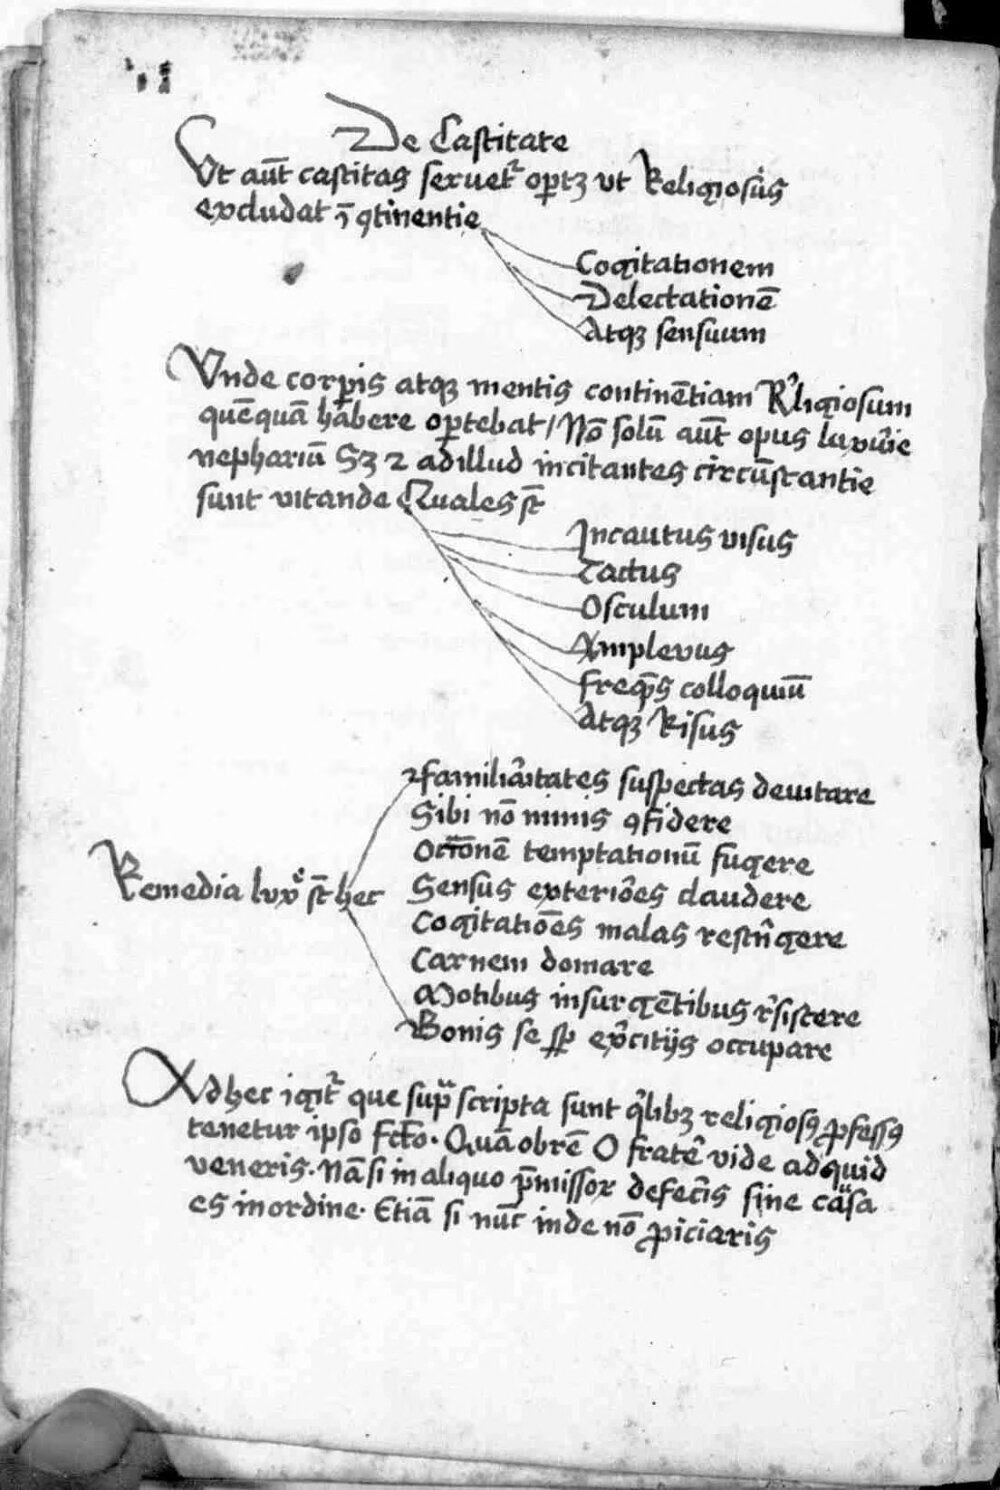 De Castitate
Ut aūt castitas seruet᷑ oportꝫ ut Religiosus
excludat īꝯtinentie
Cogitationem
Delectationē
Atqꝫ sensuum
Vnde corꝑis atqꝫ mentis continētiam Religiosum
quēquā habere oꝑtebat / Nō solū aūt opus luxurie
nephariū Sꝫ ⁊ ad illud incitantes circūstantie
sunt uitande Quales st̄
Incautus uisus
Tactus
Osculum
Amplexus
freqn̄s colloquiū
Atqꝫ Risus
familiaritates suspectas deuitare
Sibi nō nimis ꝯfidere
Occōnē temptationū fugere
Remedia lux̊ͤ st̄ hec
Sensus exteriores claudere
Cogitatiōes malas restringere
Carnem domare
Motibus insurgētibus resistere
Bonis se sꝑ exercitijs occupare
Ad hec igit᷑ que supͣscripta sunt qͥlibꝫ religiosꝰ ꝓfessꝰ
tenetur ipso fcto. Quā obrē O frater vide ad quid
veneris. Nā si in aliquo p̄missor defeceris sine causa
es in ordine. Etiā si nūc inde nō ꝓiciaris